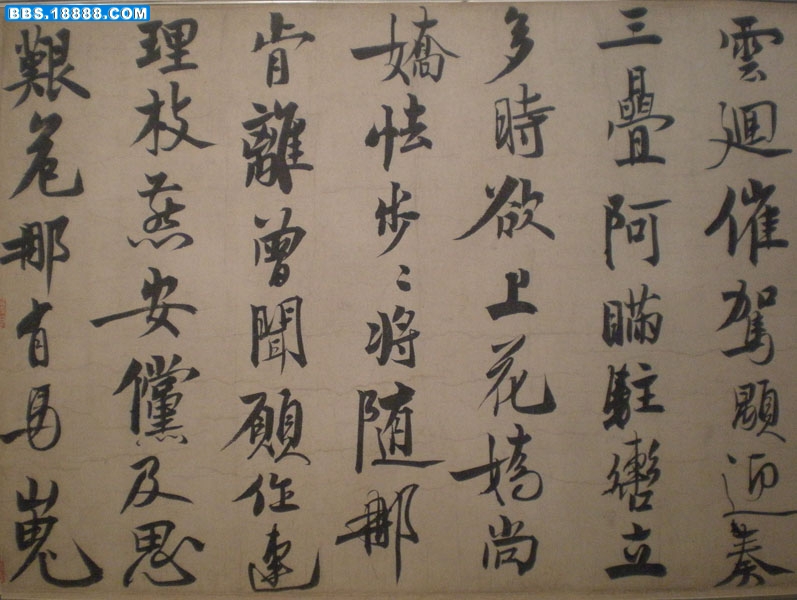 BBS.18888.COM
雲廻催駕迎奏
三疊阿瞞駐轡立
多時欲上花嬌尚
嬌怯步〻将随那
肯離曾聞願作連
理枝燕安儻及思
艱危那有馬嵬